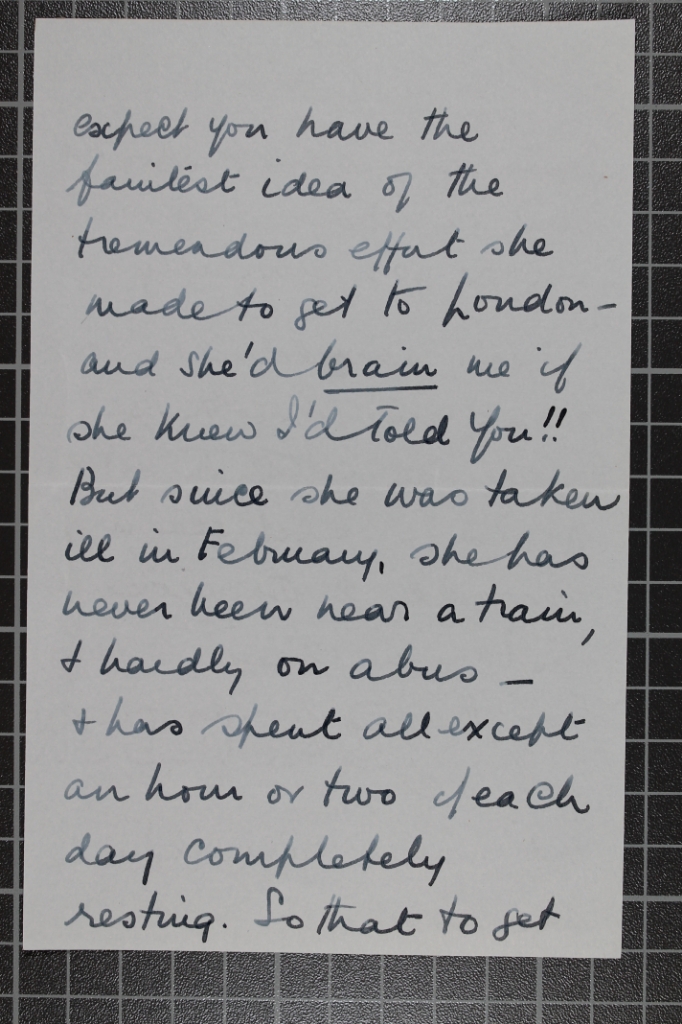 expect you have the
faintest idea of the
tremendous effort she
made to get to London –
and she'd brain me if
she knew I'd told you!!
But since she was taken
ill in February, she has
never been near a train,
& hardly on a bus –
& has spent all except
an hour or two of each
day completely
resting. So that to get